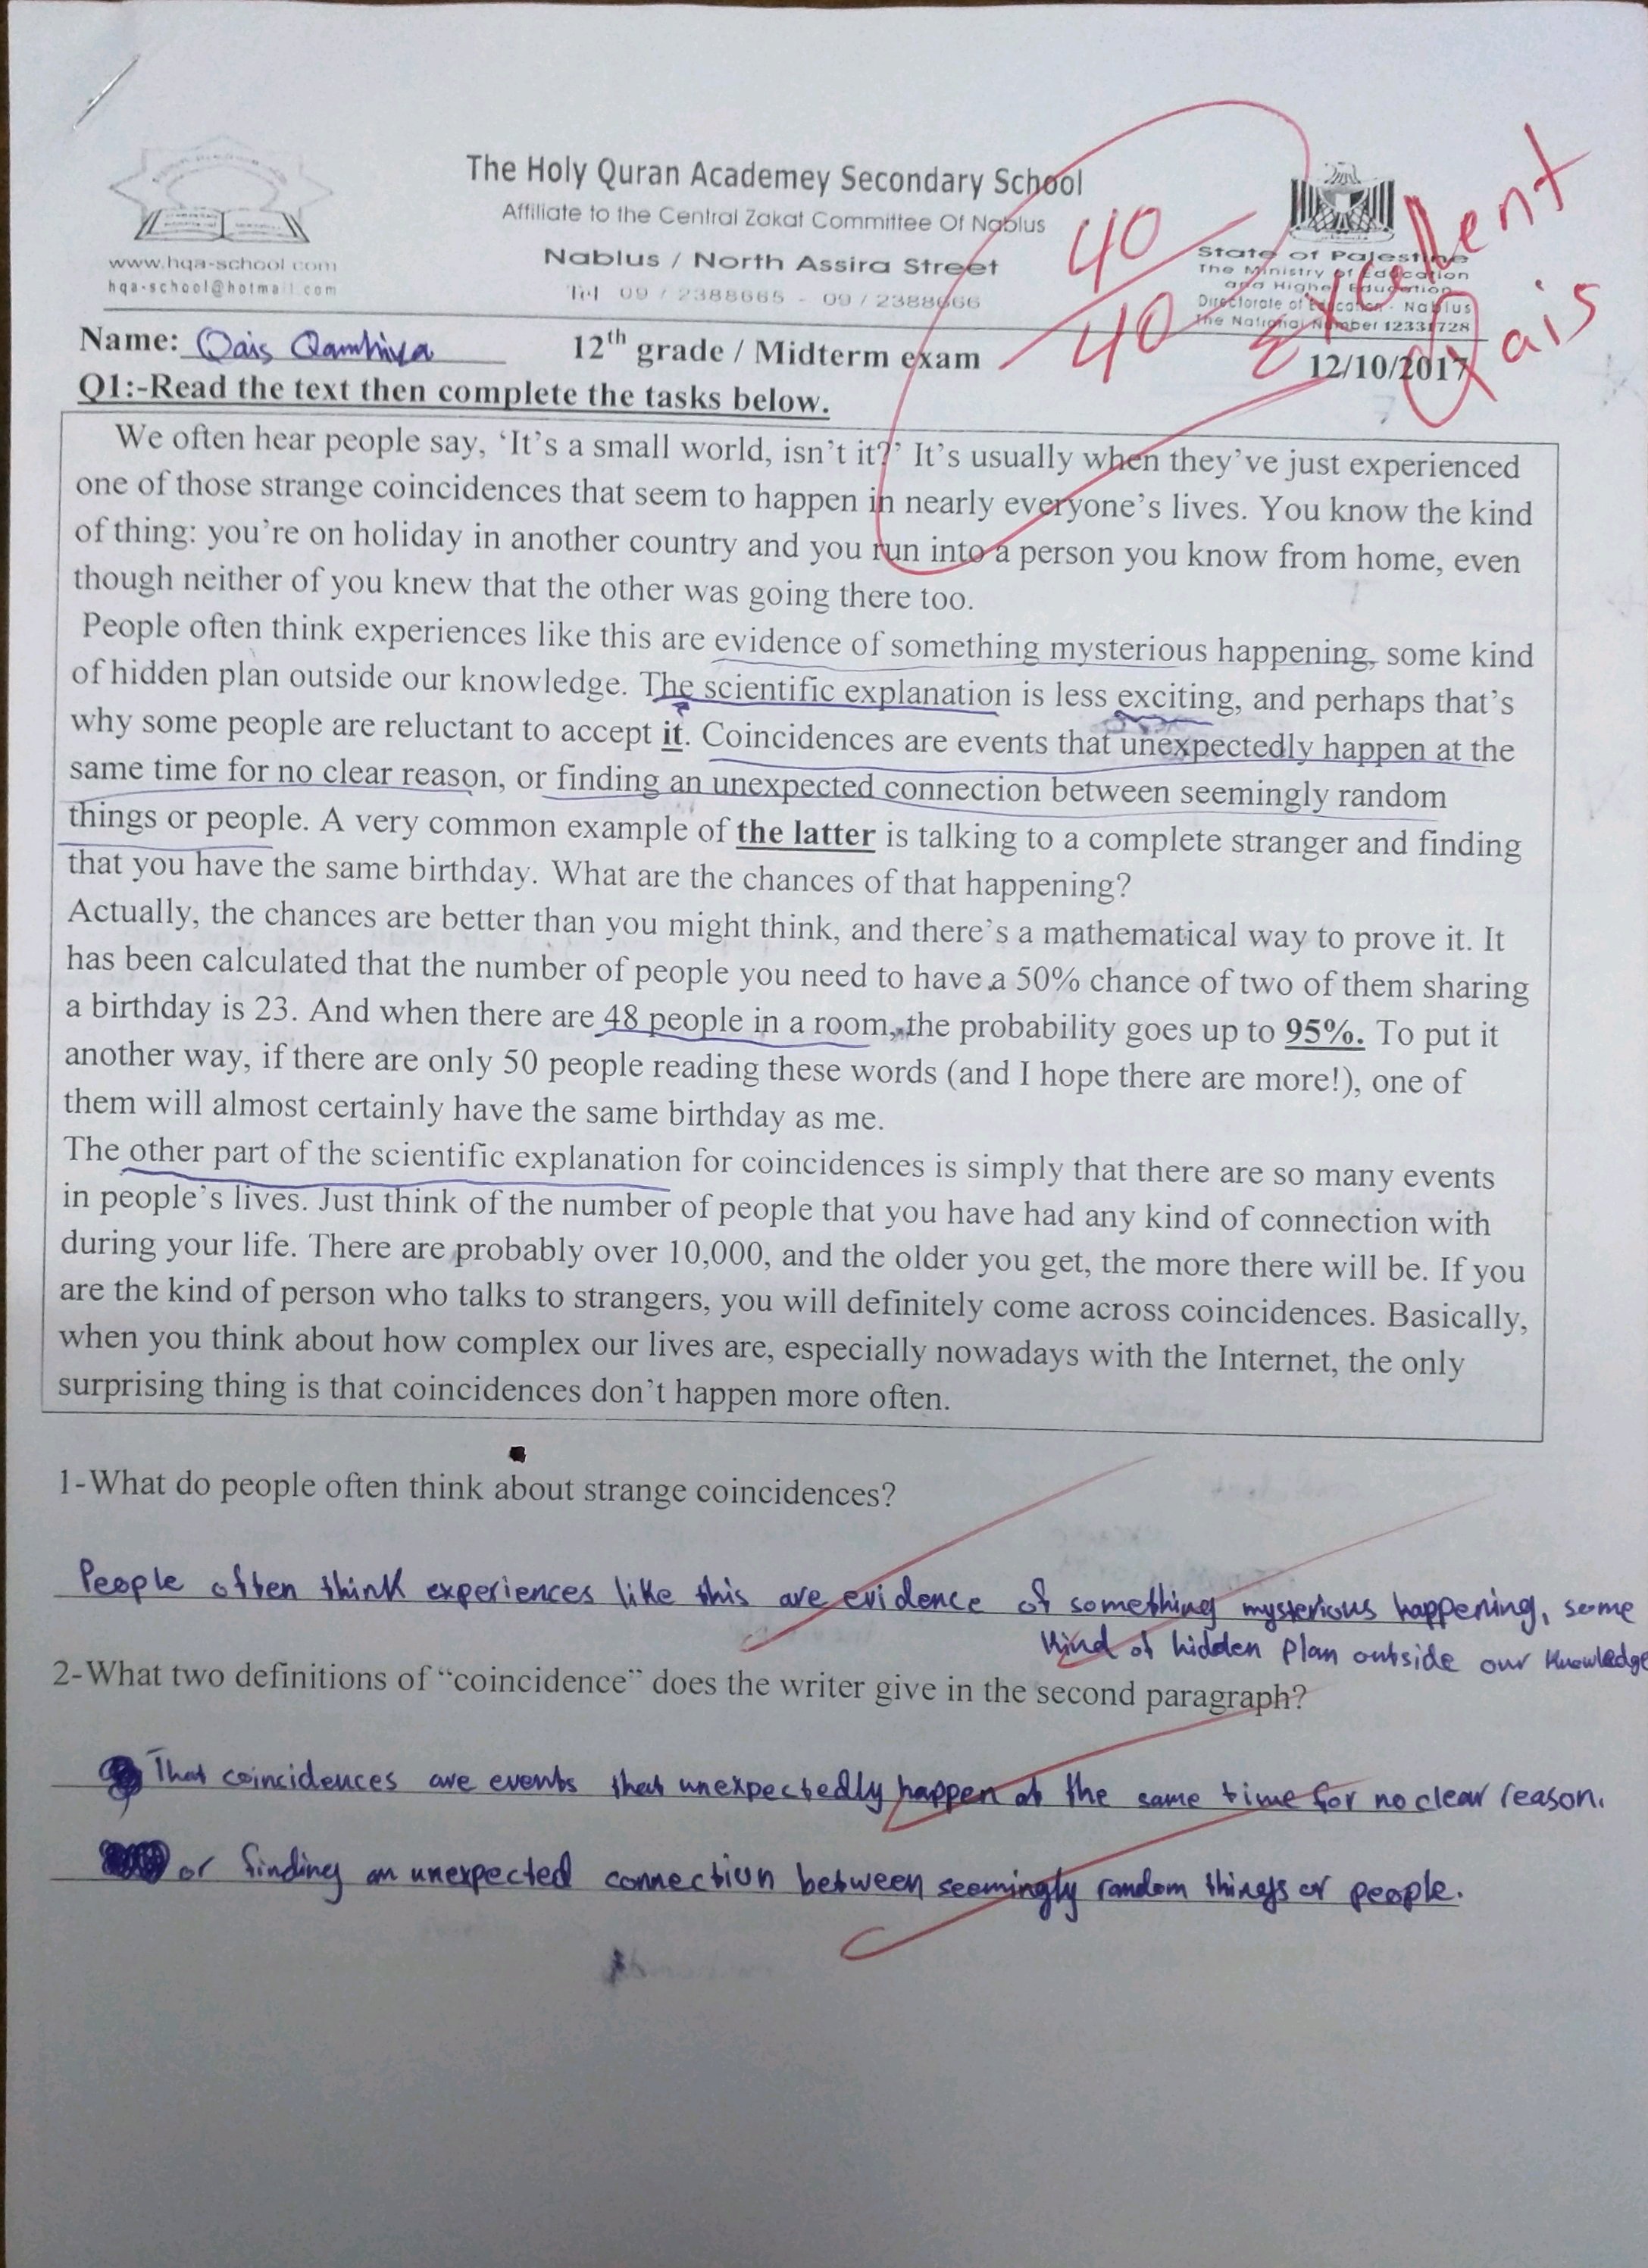 The Holy Quran Academey Secondary School
Affiliate to the Central Zakat Committee Of Nablus
Nablus / North Assira Street
Tel 09 / 2388665 - 09 / 2388666
www.hqa-school.com
hqa-school@hotmail.com
State of Palestine
The Ministry of Education
and Higher Education
Directorate of Education - Nablus
The National Number 12331728
40
40
Excellent
Qais
Name: Qais Qamhiya 12th grade / Midterm exam 12/10/2017
Q1:-Read the text then complete the tasks below.
We often hear people say, ‘It’s a small world, isn’t it?’ It’s usually when they’ve just experienced
one of those strange coincidences that seem to happen in nearly everyone’s lives. You know the kind
of thing: you’re on holiday in another country and you run into a person you know from home, even
though neither of you knew that the other was going there too.
People often think experiences like this are evidence of something mysterious happening, some kind
of hidden plan outside our knowledge. The scientific explanation is less exciting, and perhaps that’s
why some people are reluctant to accept it. Coincidences are events that unexpectedly happen at the
same time for no clear reason, or finding an unexpected connection between seemingly random
things or people. A very common example of the latter is talking to a complete stranger and finding
that you have the same birthday. What are the chances of that happening?
Actually, the chances are better than you might think, and there’s a mathematical way to prove it. It
has been calculated that the number of people you need to have a 50% chance of two of them sharing
a birthday is 23. And when there are 48 people in a room, the probability goes up to 95%. To put it
another way, if there are only 50 people reading these words (and I hope there are more!), one of
them will almost certainly have the same birthday as me.
The other part of the scientific explanation for coincidences is simply that there are so many events
in people’s lives. Just think of the number of people that you have had any kind of connection with
during your life. There are probably over 10,000, and the older you get, the more there will be. If you
are the kind of person who talks to strangers, you will definitely come across coincidences. Basically,
when you think about how complex our lives are, especially nowadays with the Internet, the only
surprising thing is that coincidences don’t happen more often.
1-What do people often think about strange coincidences?
People often think experiences like this are evidence of something mysterious happening, some
kind of hidden plan outside our knowledge
2-What two definitions of “coincidence” does the writer give in the second paragraph?
That coincidences are events that unexpectedly happen at the same time for no clear reason.
or finding an unexpected connection between seemingly random things or people.